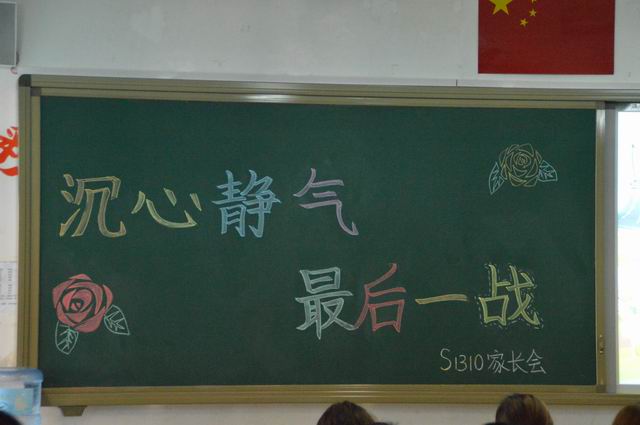 沉心静气
最后一战
S1310家长会